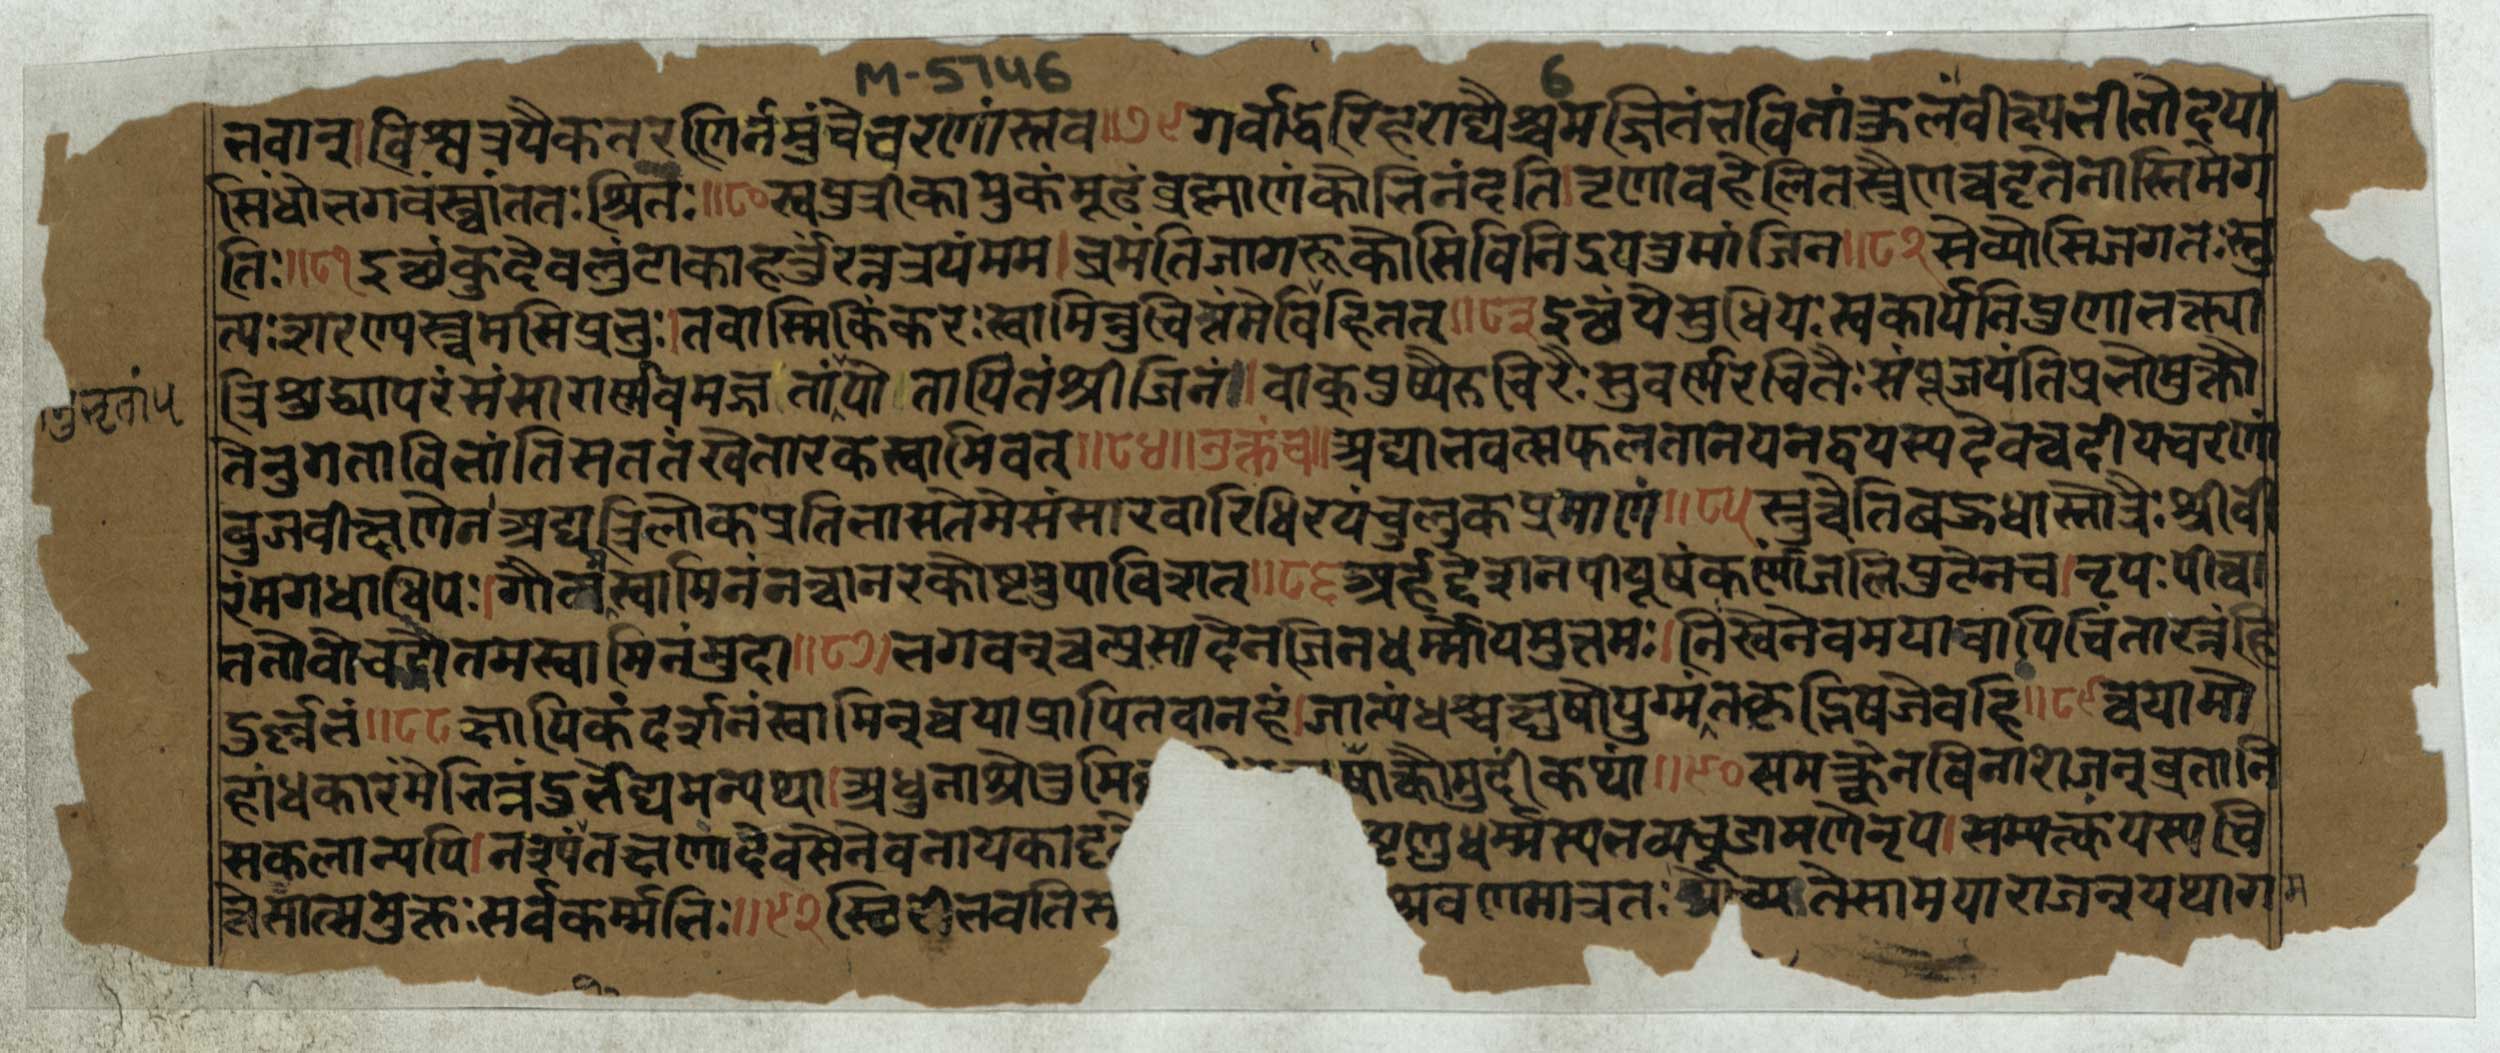 M-5746 6
भवान्।विश्वत्रयैकतरणिर्नमुंचे चरणांस्तव॥७९गर्वाद्धरिहराद्यैश्चमज्जितंभवितांकुलंवीक्ष्यनीतौदया
सिंधोभगवंस्त्वांततःश्रितः॥८०स्वपुत्रीकामुकंमूढंब्रह्माणंकोभिनंदति।तृणावहेलितस्त्रैणेत्वदृतेनास्तिमेग
तिः॥८१इत्थंकुदेवलुंटाकाहर्त्तुंरत्नत्रयंममभ्रमंतिजागरूकोसिविनिद्रयत्रमांजिन॥८२सेव्योसिजगतःस्तु
त्यःशरण्यस्त्वमसिप्रभुः।तवास्मिकिंकरःस्वामिन्नुचितंमेविहितत्॥८३इत्थंयेसुधियःस्वकार्यनिपुणाभक्त्या
त्रिशुद्ध्यापरंसंसारार्णवमज्जतांपोतायितंश्रीजिनं।वाक्पुष्पैरुचिरैःसुवर्णरचितैःसंपूजयंतिप्रभोमुक्तौ
तेनुगताविभांतिसततंखेतारकस्वामिवत्॥८४॥उक्तंच॥अद्याभवत्सफलतानयनद्वयस्यदेवत्वदीयचरणां
बुजवीक्षणेनअद्यत्रिलोकप्रतिभासतेमेसंसारवारिधिरयंचुलुकप्रमाणं॥८५स्तुत्वेतिबहुधास्तोत्रैःश्रीवी
रंमगधाधिपः।गौतमस्वामिनंनत्वानरकोष्टमुपाविशत्॥८६अर्हद्देशनपीयूषंकर्णांजलिपुटेनच।नृपःपीत्वा
ततोवोचद्गौतमस्वामिनंमुदा॥८७भगवन्त्वत्प्रसादेनजिनधर्म्मोयमुत्तमः।निस्वेनेवमयावापिचिंतारत्नंहि
दुर्ल्लभं॥८८क्षायिकंदर्शनंस्वामिन्त्वयाप्रापितवानहं।जात्यंधश्चक्षुषोयुग्मंतकृद्भिषजेवहि॥८९त्वयामो
हांधकारंमेभिन्नंदुर्भेद्यमन्यथा।अधुनाश्रोतुमि षांकौमुदींकथां॥९०सम्यक्त्वेनविनाशेजन्व्रतानि
सकलान्यपि।नश्येषंतत्क्षणादेवसेनेवनायकादृते शृणुधर्म्मस्यभव्यचूडामणेनृप।सम्यक्त्कंयस्यचि
त्तेसात्समुक्तःसर्वकर्म्मभिः॥९२स्थिरीभवतिस श्रवणमात्रतः तेसामयाराजन्यथाग
म